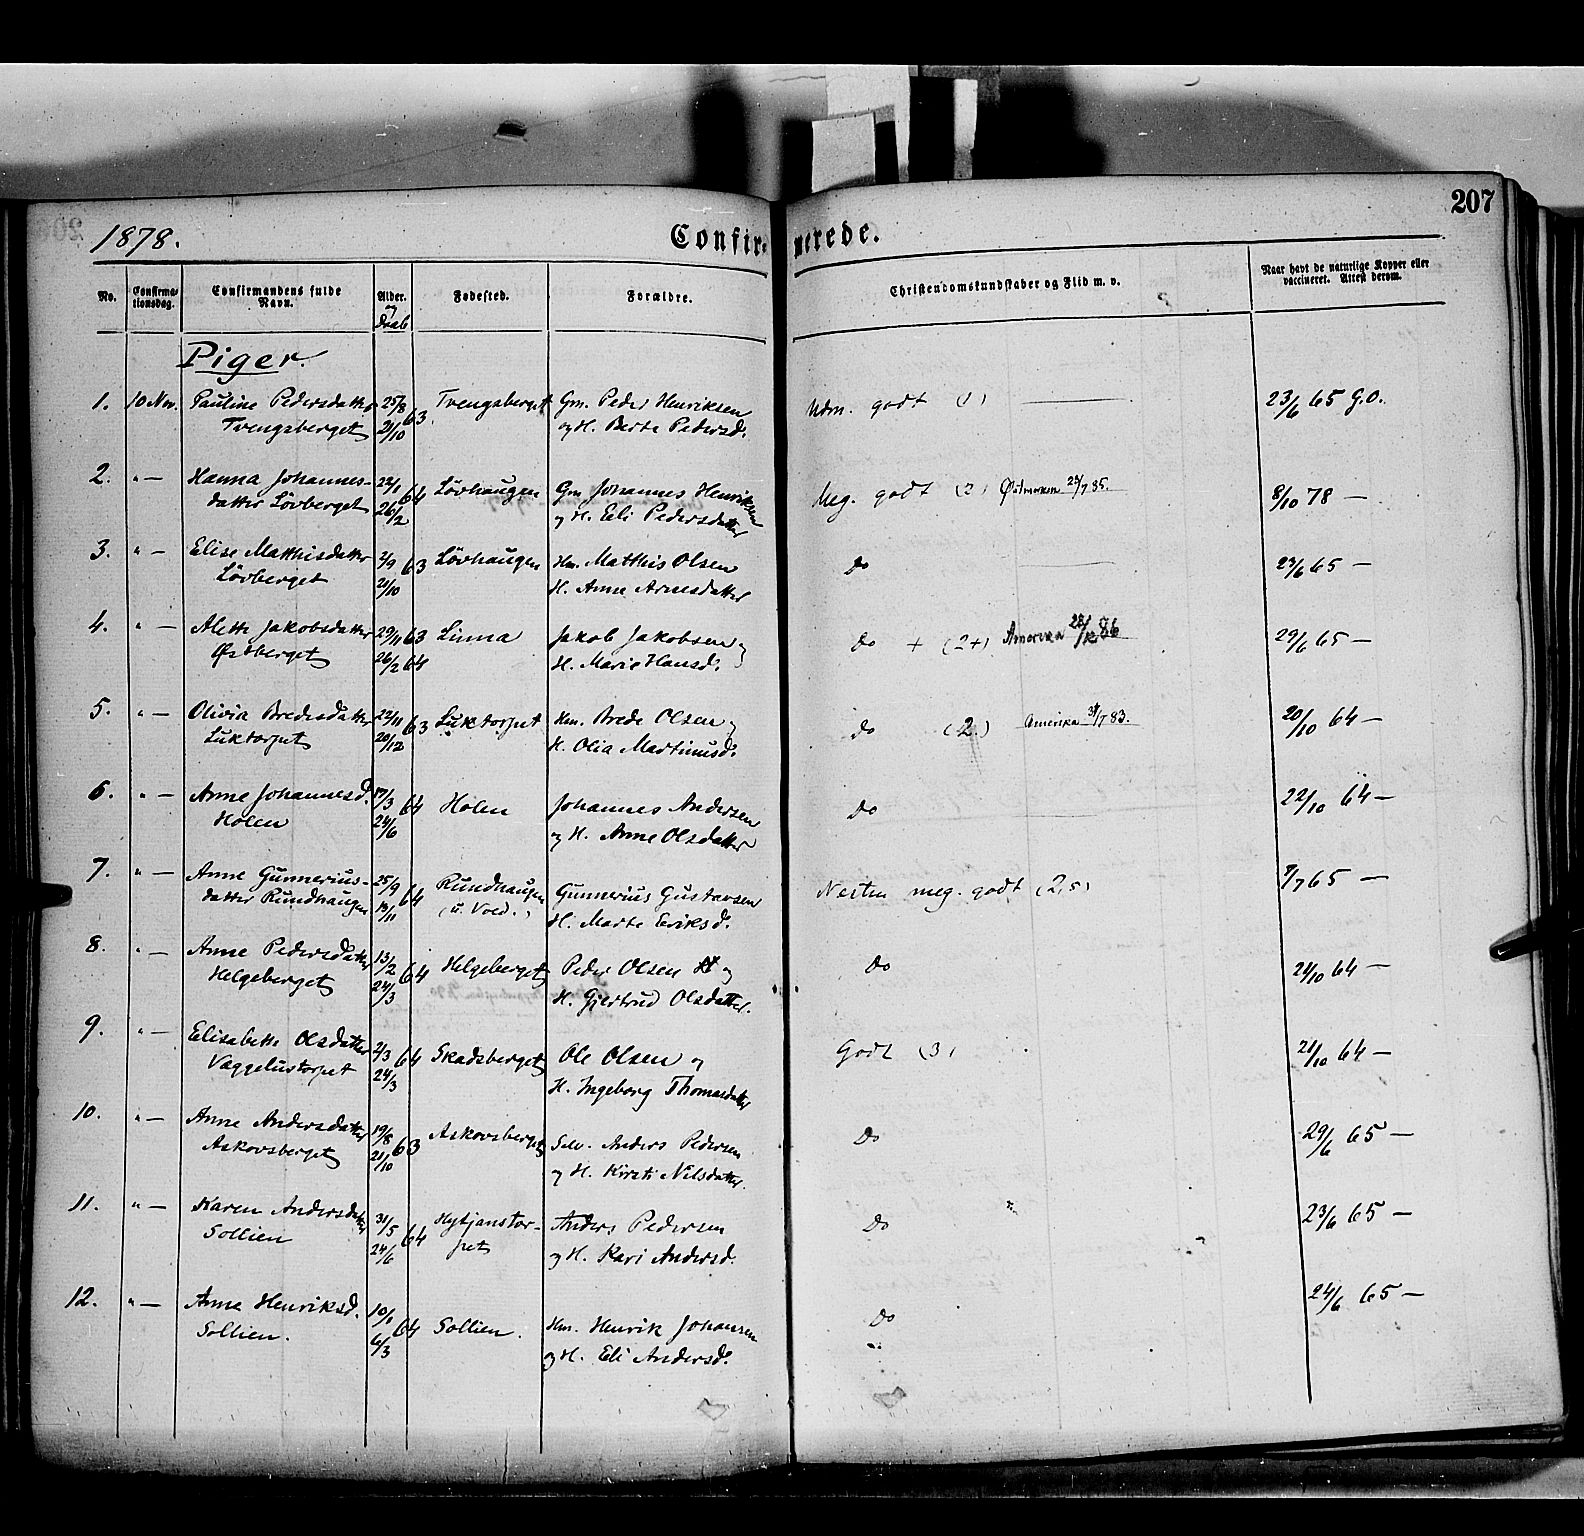 207
1878.
Confirmerede.
No.
Confirmationsdag.
Confirmandens fulde Navn.
Alder. og Daab
Fødested.
Forældre.
Christendomskundskaber og Flid m. v.
Naar havt de naturlige Kopper eller vaccineret. Attest derom.
Piger.
1. 10 Nov. Pauline Pedersdatter 25/8 63 Tvengsberget Gm. Peder Henriksen Udm. godt (1) — 23/6 65 G.O.
Tvengsberget 21/10 og H. Berte Pedersd.
2. " — Hanna Johannes- 22/1 64 Lövhaugen Gm Johannes Henriksen Meg. godt (2) Østmarken 23/7 85. 8/10 78 —
datter Lövberget 26/2 og H. Eli Pedersdatter
3. " — Elise Matthisdatter 2/9 63 Lövhaugen Hm. Matthis Olsen Do — 23/6 65 —
Lövberget 20/10 H. Anne Arnesdatter
4. " — Alette Jakobsdatter 29/11 63 Linna Jakob Jakobsen og Do + (2+) Amerika 86 29/6 65 —
Østberget 26/2 64 H. Marie Hansd.
5. " — Olivia Bredesdatter 22/11 63 Luktorpet Hm. Brede Olsen og Do (2) Amerika 83. 20/10 64 —
Luktorpet 20/12 H. Olia Martinusd.
6. " — Anne Johannesd. 17/3 64 Holen Johannes Andersen Do 22/10 64 —
Holen 24/6 og H. Anne Olsdatter
7. " — Anne Gunnerius- 25/9 64 Rundhaugen Gunnerius Gustavsen Nesten meg. godt (2,5) 65 —
datter Rundhaugen 13/11 (u. Vold.) H. Marte Eriksd.
8. " — Anne Pedersdatter 13/2 64 Helgeberget Peder Olsen og Do 21/10 64 —
Helgeberget 24/3 H. Gjertrud Olsdatter.
9. " — Elisabette Olsdatter 2/3 64 Skadsberget Ole Olsen og Godt (3) 21/10 64 —
Vaggelustorpet 24/3 H. Ingeborg Thomasdatter
10. " — Anne Andersdatter 19/8 63 Askovsberget Selv. Anders Pedersen Do 29/6 65 —
Askovsberget 21/10 og H. Kirsti Nilsdatter.
11. " — Karen Andersdatter 31/5 64 Hytjanstor- Anders Pedersen Do " 23/6 65 —
Sollien 24/6 pet og H. Kari Andersd.
12. " — Anne Henriksd. 10/1 64 Sollien. Hm. Henrik Johansen Do 24/6 65 —
Sollien. 6/3 og H. Eli Andersd.